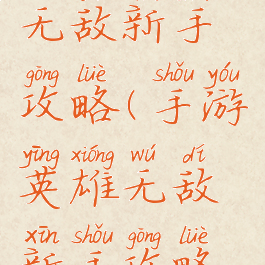 无敌新手
gōng lüè shǒu yóu
攻略(手游
yīng xióng wú dí
英雄无敌
xīn shǒu gōng lüè
新手攻略